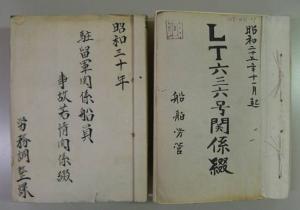 昭和三十年
駐留軍関係船員
事故苦情関係綴
労務調整課
昭和二十五年十一月起
LT六三六号関係綴
船舶労管